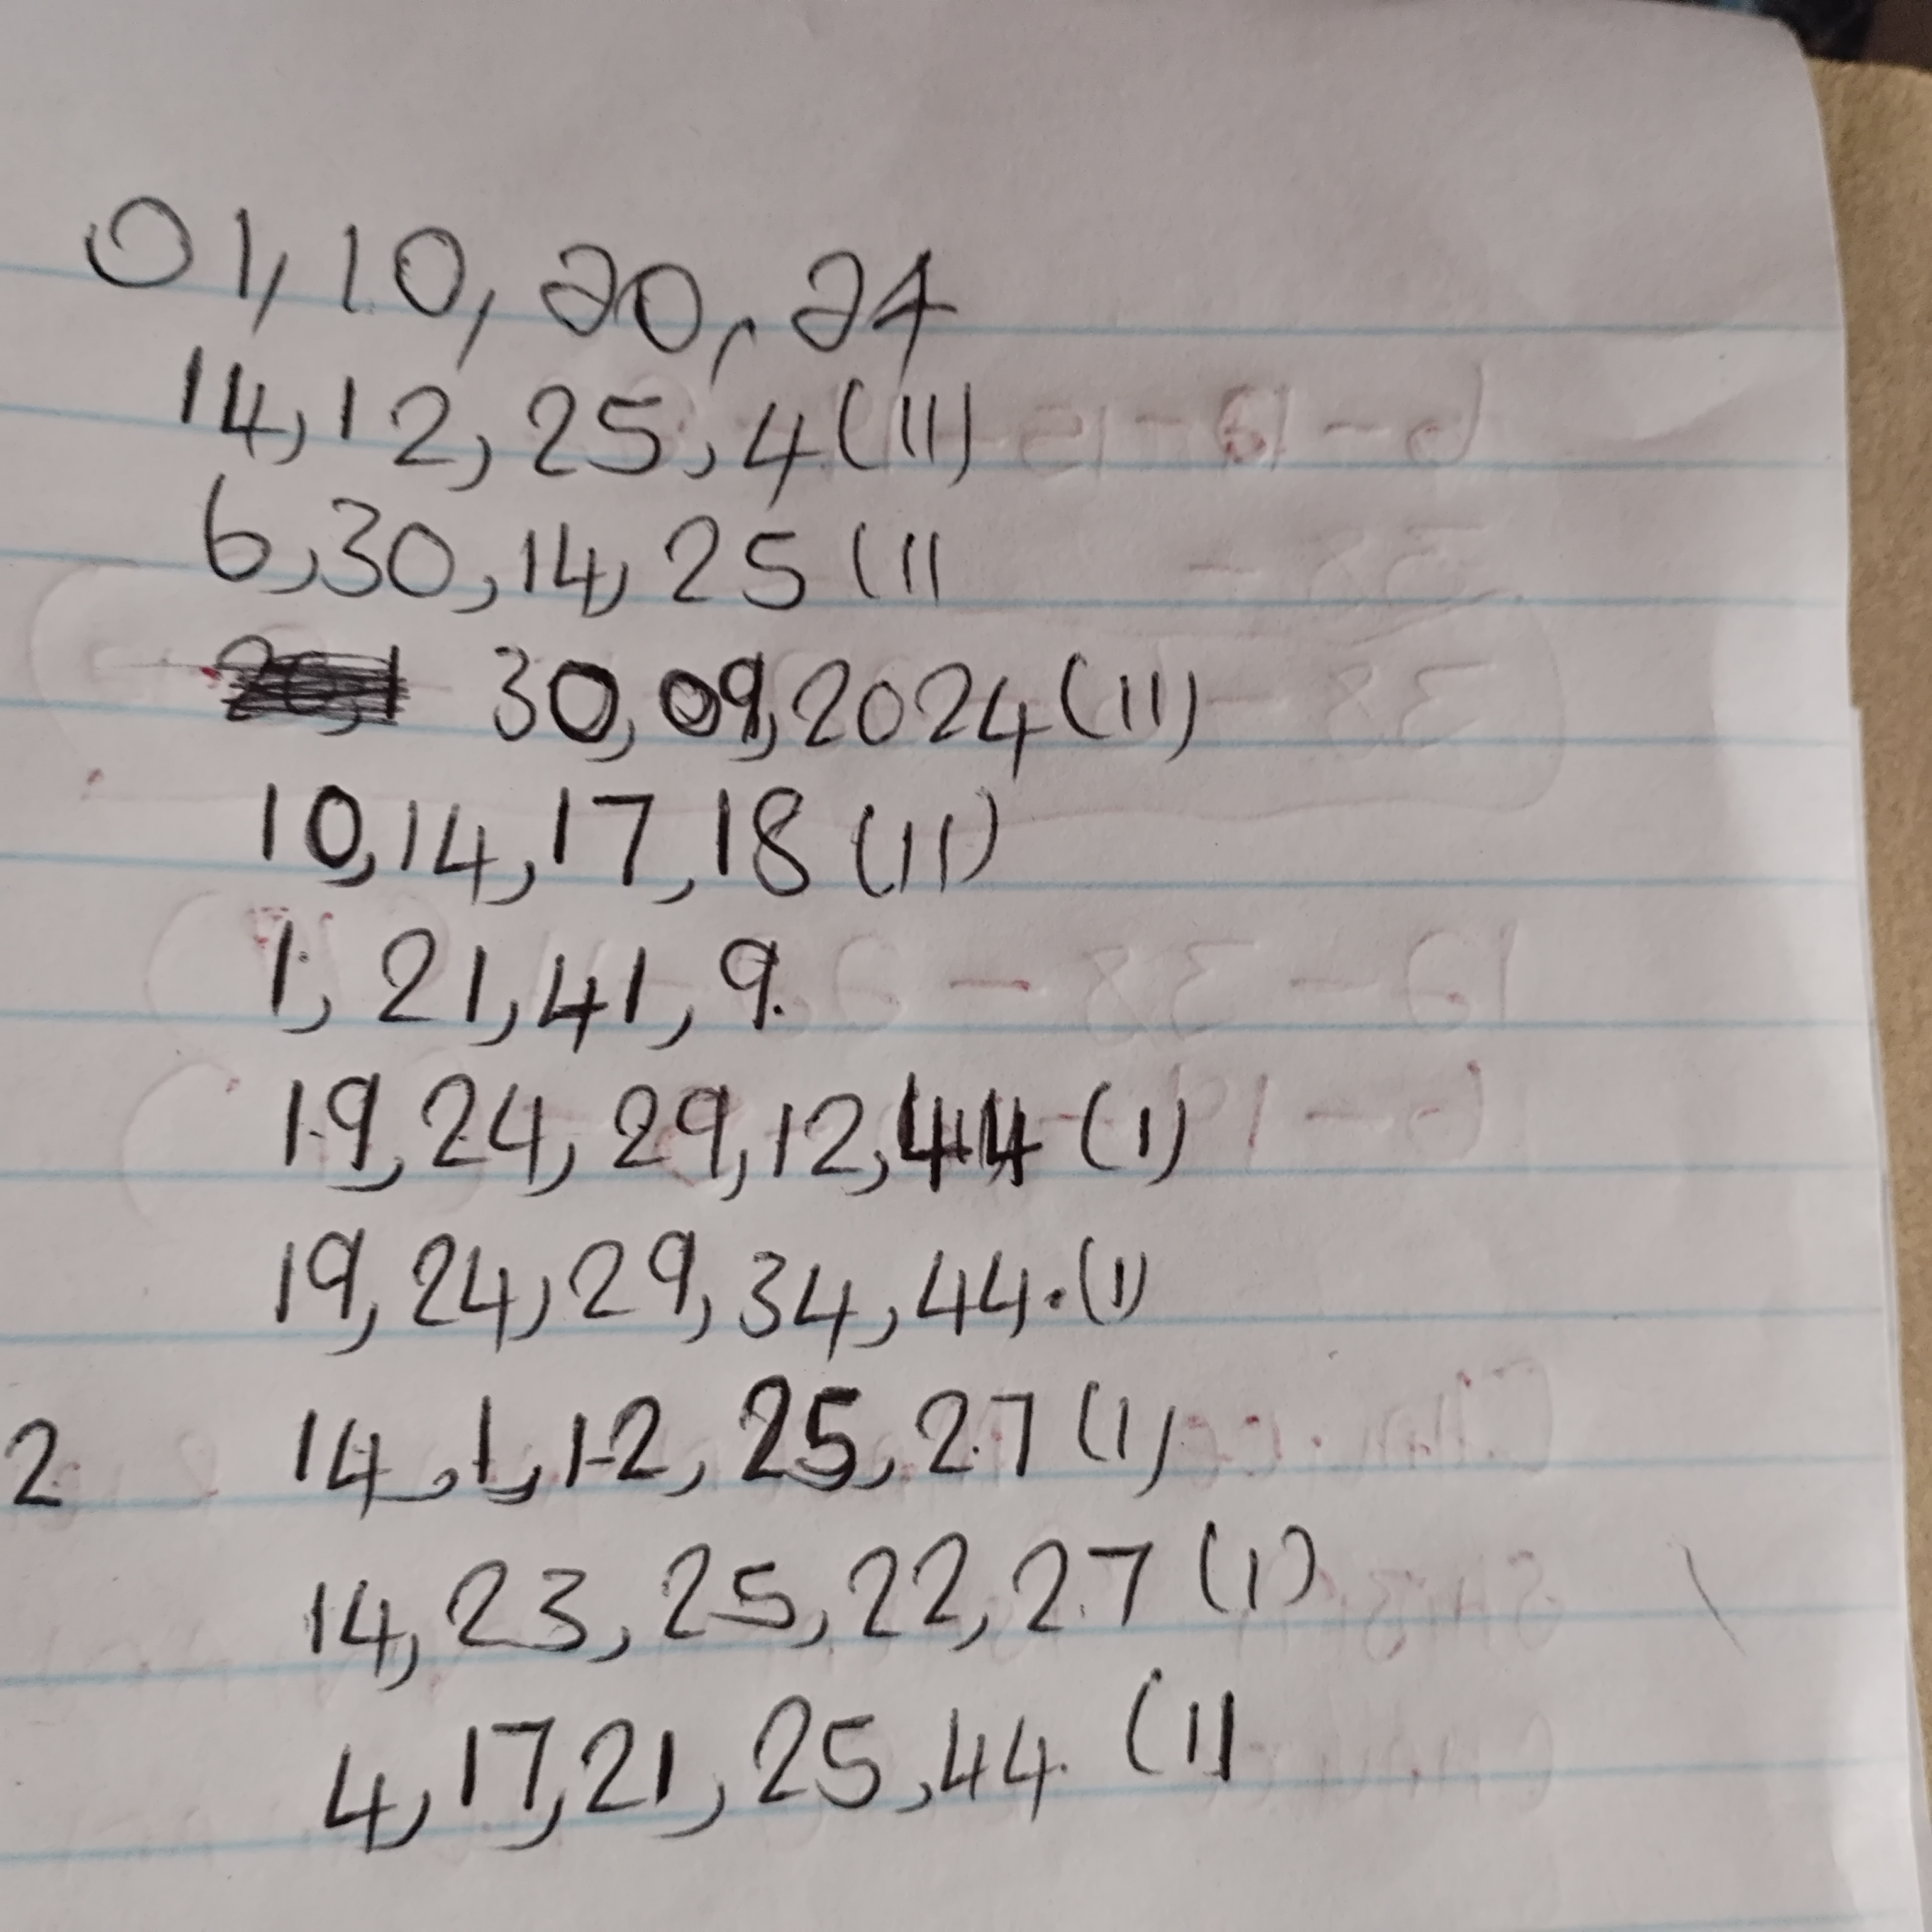 01, 10, 20, 24
14, 12, 25, 4 (11)
6, 30, 14, 25 (11
30, 09, 2024 (11)
10, 14, 17, 18 (11)
1, 21, 41, 9.
19, 24, 29, 12, 44 (1)
19, 24, 29, 34, 44. (1)
2 14, 1, 12, 25, 27 (1)
14, 23, 25, 22, 27 (1)
4, 17, 21, 25, 44. (1)